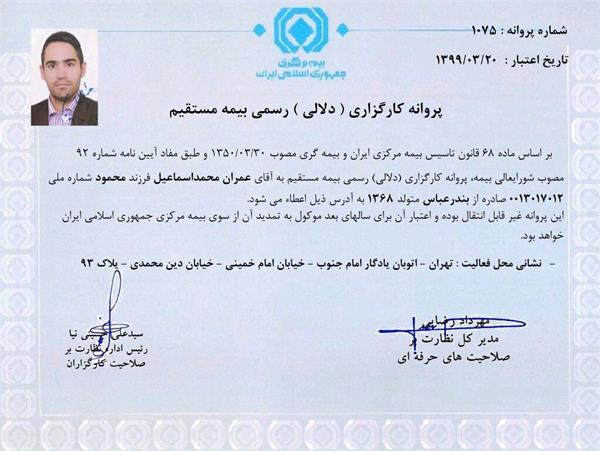 شماره پروانه : ۱۰۷۵
تاریخ اعتبار : ۱۳۹۹/۰۳/۲۰
بیمه مرکزی
جمهوری اسلامی ایران
پروانه کارگزاری ( دلالی ) رسمی بیمه مستقیم
بر اساس ماده ۶۸ قانون تاسیس بیمه مرکزی ایران و بیمه گری مصوب ۱۳۵۰/۰۳/۳۰ و طبق مفاد آیین نامه شماره ۹۲
مصوب شورایعالی بیمه، پروانه کارگزاری (دلالی) رسمی بیمه مستقیم به آقای عمران محمداسماعیل فرزند محمود شماره ملی
۰۰۱۳۰۱۷۰۱۲ صادره از بندرعباس متولد ۱۳۶۸ به آدرس ذیل اعطاء می شود.
این پروانه غیر قابل انتقال بوده و اعتبار آن برای سالهای بعد موکول به تمدید آن از سوی بیمه مرکزی جمهوری اسلامی ایران
خواهد بود.
- نشانی محل فعالیت : تهران - اتوبان یادگار امام جنوب - خیابان امام خمینی - خیابان دین محمدی - پلاک ۹۳
مهرداد رضایی
مدیر کل نظارت بر
صلاحیت های حرفه ای
سیدعلی حسینی نیا
رئیس اداره نظارت بر
صلاحیت کارگزاران